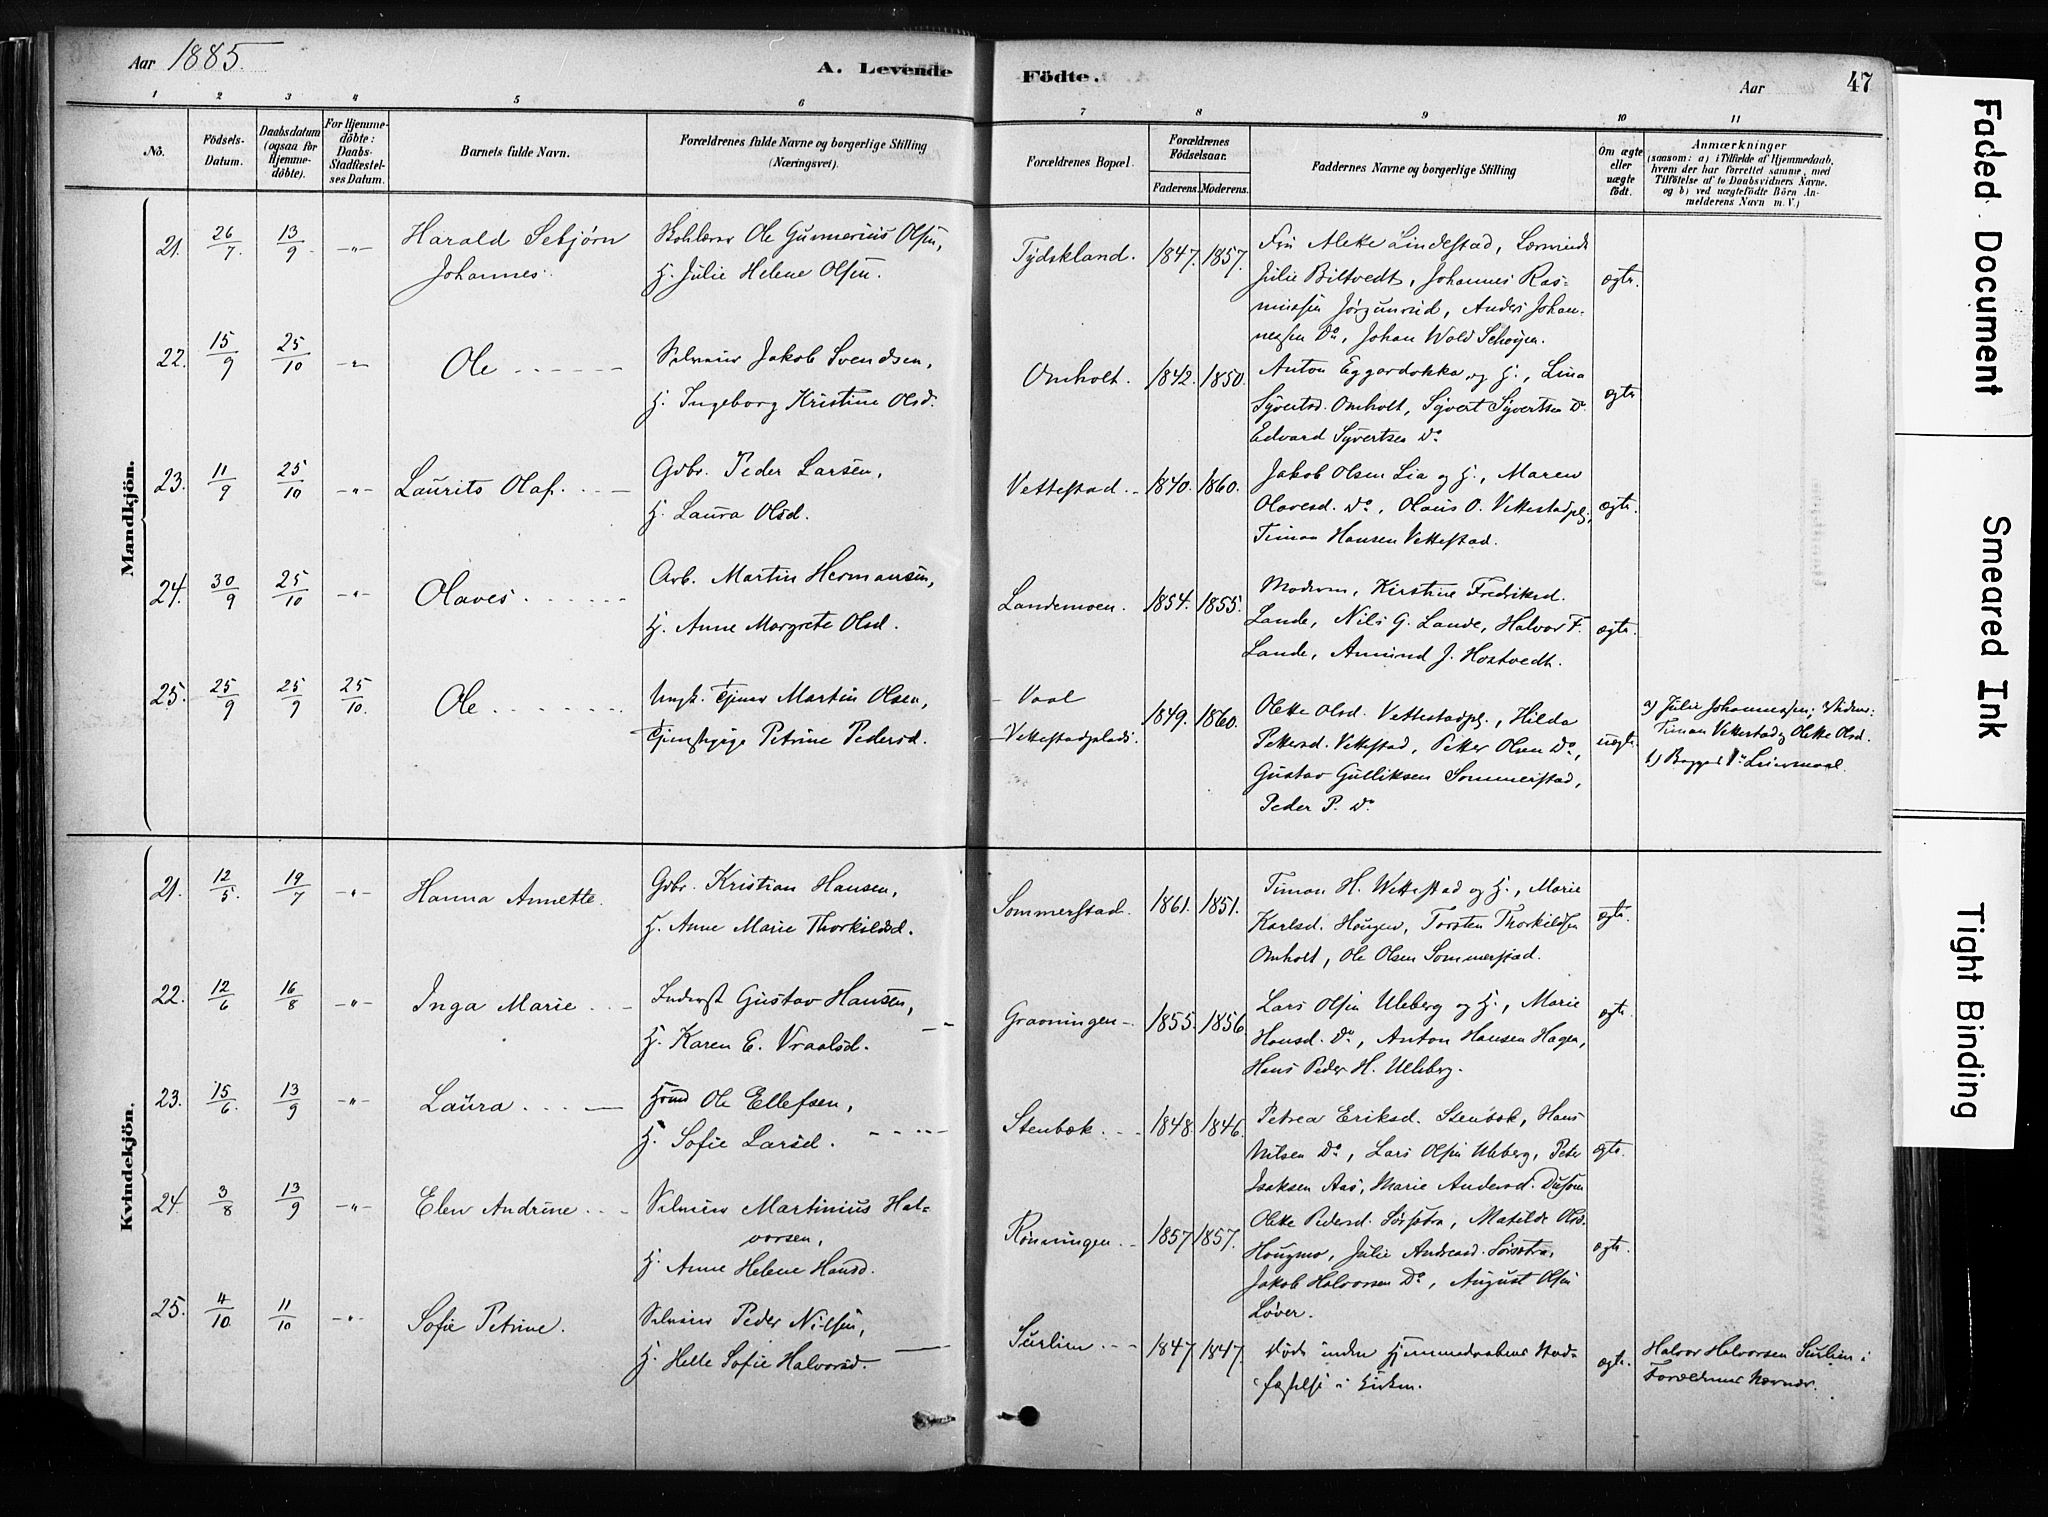 Aar 1885.
A. Levende
Födte.
Aar
47
1 2 3 4 5 6 7 8 9 10 11
No.
Födsels-Datum.
Daabsdatum (ogsaa for Hjemme-döbte).
For Hjemme-döbte: Daabs-Stadfæstel-ses Datum.
Barnets fulde Navn.
Forældrenes fulde Navne og borgerlige Stilling (Næringsvei).
Forældrenes Bopæl.
Forældrenes Födselsaar.
Faderens. Moderens.
Faddernes Navne og borgerlige Stilling
Om ægte eller uægte födt.
Anmærkninger
(saasom: a) i Tilfælde af Hjemmedaab, hvem der har forrettet samme, med Tilföielse af to Daabsvidners Navne, og b) ved uægtefödte Börn An-melderens Navn m. V.)
Mandkjön.
21. 26/7 13/9 -"- Harald Sebjørn
Johannes.
Ole Gunnerius Olsen,
H. Julie Helene Olsen.
Tydskland. 1847. 1857.
Aleke Lindestad,
Julie Biltvedt, Johannes Ras-
mussen Jørgunrud, Anders Johan-
nessen Do, Johan Wold
ægte.
22. 15/9 25/10 -"- Ole
Selveier Jakob Svendsen,
H. Ingeborg Kristine Olsd.
Omholt. 1842. 1850.
Anton Eggardokka og H., Lina
Syvertsd. Omholt, Syvert Syvertsen Do
Edvard Syvertsen Do
ægte
23. 11/9 25/10 -"- Laurits Olaf.
Gdbr. Peder Larsen,
H. Laura Olsd.
Vettestad. 1840. 1860.
Jakob Olsen Lia og H., Maren
Olavesd. Do, Olaus O. Vettestadpl.,
Timan Hansen Vettestad.
ægte.
24. 30/9 25/10 -"- Olaves
Arb. Martin Hermansen,
H. Anne Margrete Olsd.
Landemoen. 1854. 1855.
Moderen, Kirstine Fredriksd.
Lande, Nils G. Lande, Halvor F.
Lande, Amund J. Hostvedt.
ægte.
25. 25/9 25/9 25/10. Ole
Ungk. Tjener Martin Olsen,
Tjenstpige Petrine Pedersd.
- Vaal
- Vettestadplads.
1849. 1860.
Olette Olsd. Vettestadpl., Hilda
Pettersd. Vettestad, Petter Olsen Do,
Gustav Gulliksen Sommerstad,
Peder P. Do
uægte.
a) Julie Johannessen; Vidner:
Timan Vettestad og Olette Olsd.
b)
Kvindekjön.
21. 12/5. 19/7 -"- Hanna Annette.
Gdbr. Kristian Hansen,
H. Anne Marie Thorkildsd.
Sommerstad. 1861. 1851.
Timan H. Vettestad og H., Marie
Karlsd. Hougen, Torsten Thorkildsen
Omholt, Ole Olsen Sommerstad.
ægte.
22. 12/6 16/8 -"- Inga Marie
Inderst Gustav Hansen,
H. Karen E. Vraalsd.
Graaningen 1855. 1856.
Lars Olsen Uleberg og H., Marie
Hansd. Do, Anton Hansen Hagen,
Hans Peder H. Ulleberg.
ægte.
23. 15/6. 13/9 -"- Laura
Hmd Ole Ellefsen,
H. Sofie Larsd.
Stenbæk. 1848. 1846.
Petrea Eriksd. Stenbæk, Hans
Nilsen Do, Lars Olsen Uleberg, Peter
Isaksen Aas, Marie Andersd.
ægte.
24. 3/8 13/9 -"- Elen Andrine
Selveier Martinius Hal-
vorsen,
H. Anne Helene Hansd.
Rønningen. 1857 1857.
Olette Pedersd. Sørsætra, Matilde Olsd.
Hougmo, Julie Andreasd. Sørsætra,
Jakob Halvorsen Do, August Olsen
Løver.
ægte.
25. 4/10. 11/10 -"- Sofie Petrine.
Selveier Peder Nilsen,
H. Helle Sofie Halvorsd.
Surlien 1847 1847.
døde inden Hjemmedaabens Stad-
fæstelse i Kirken.
ægte.
Halvor Halvorsen Surlien i
Forældrenes Nærvær.
Faded Document
Smeared Ink
Tight Binding